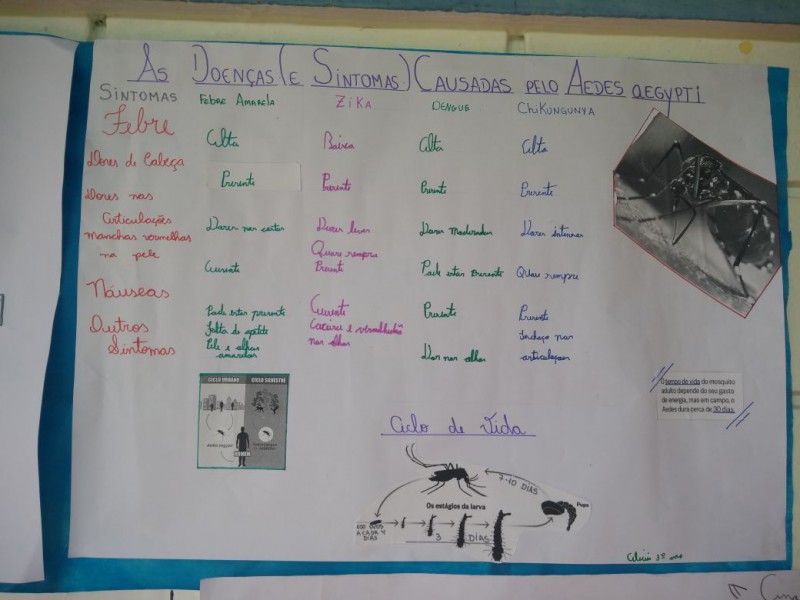 As Doenças (e Sintomas) Causadas pelo Aedes aegypti
SINTOMAS FEBRE AMARELA ZIKA DENGUE CHIKUNGUNYA
Febre Alta Baixa Alta Alta
Dores de Cabeça Presente Presente Presente Presente
Dores nas Articulações Dores nas costas Dores leves Dores Moderadas Dores intensas
Manchas vermelhas na pele Ausente Quase sempre Presente Pode estar presente Quase sempre
Náuseas Pode estar presente Ausente Presente Presente
Outros Sintomas Falta de apetite Pele e olhos amarelos Coceira e vermelhidão nos olhos Dor nos olhos Inchaço nas articulações
CICLO URBANO CICLO SILVESTRE
Aedes aegypti
HOMEM
O tempo de vida do mosquito
adulto depende do seu gasto
de energia, mas em campo, o
Aedes dura cerca de 30 dias.
Ciclo de Vida
7-10 DIAS
Os estágios da larva
Pupa
A CADA 4
DIAS
3 DIAS
3º ano